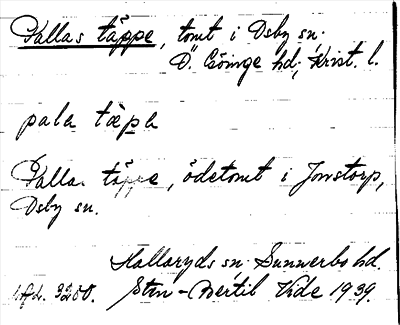 Pallas täppe, tomt i Osby sn.
Ö. Göinge hd; Krist. l.
pala tæpa
Pallas täppe, ödetomt i Jonstorp,
Osby sn.
Hallaryds sn. Sunnerbo hd.
3200. Sten-Bertil Vide 1939.